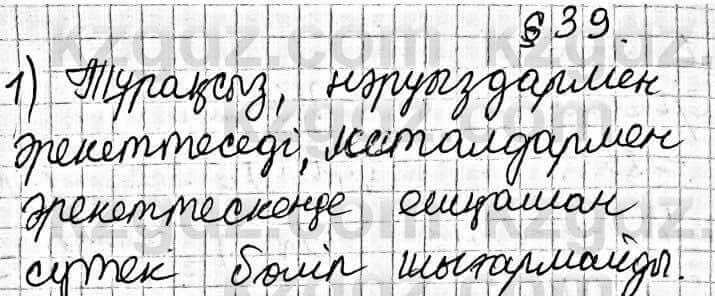 § 39.
1) Тұрақсыз, нәруыздармен
әрекеттеседі, металдармен
әрекеттескенде ешқашан
сутек бөліп шығармайды.